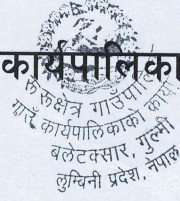 कार्यपालिका
रुरुक्षेत्र गाउँपालि
गाउँ कार्यपालिकाको कार्या
बलेटक्सार, गुल्मी
लुम्बिनी प्रदेश, नेपाल